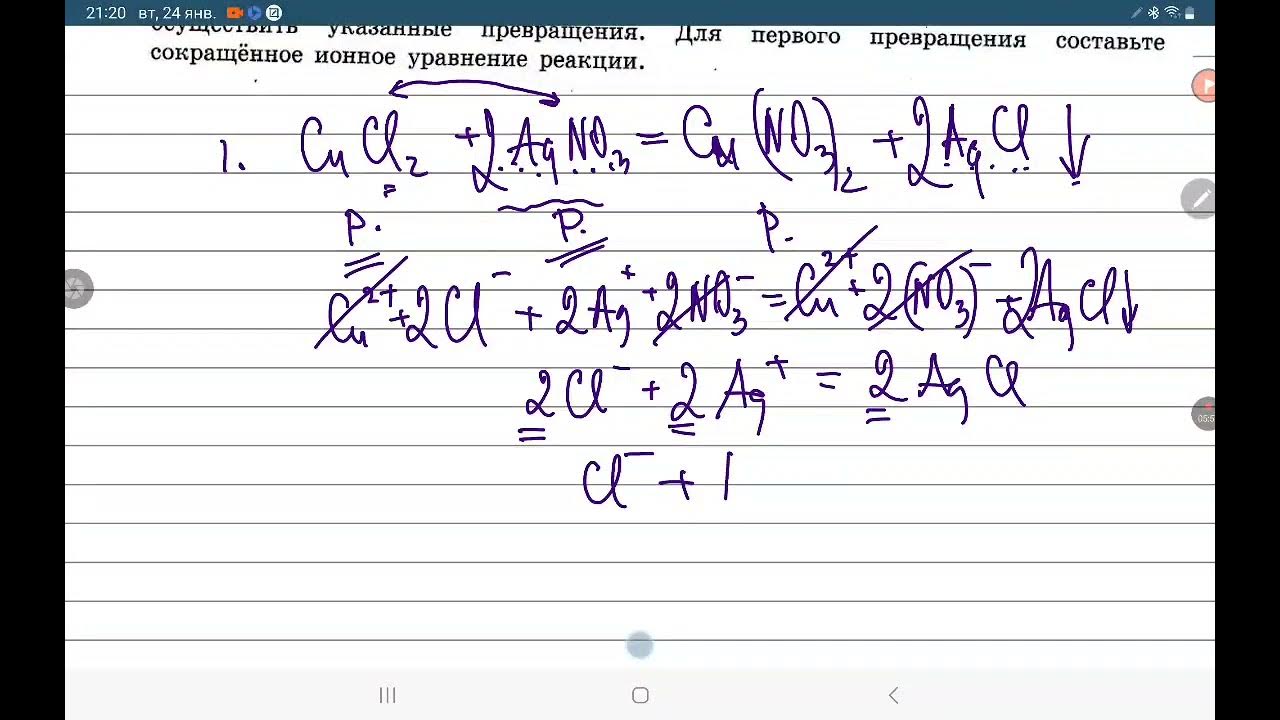 21:20 вт, 24 янв.
осуществить указанные превращения. Для первого превращения составьте
сокращённое ионное уравнение реакции.
1. CuCl₂ + 2AgNO₃ = Cu(NO₃)₂ + 2AgCl↓
Р. Р. Р.
Cu²⁺ + 2Cl⁻ + 2Ag⁺ + 2NO₃⁻ = Cu²⁺ + 2(NO₃)⁻ + 2AgCl↓
2Cl⁻ + 2Ag⁺ = 2AgCl
Cl⁻ +